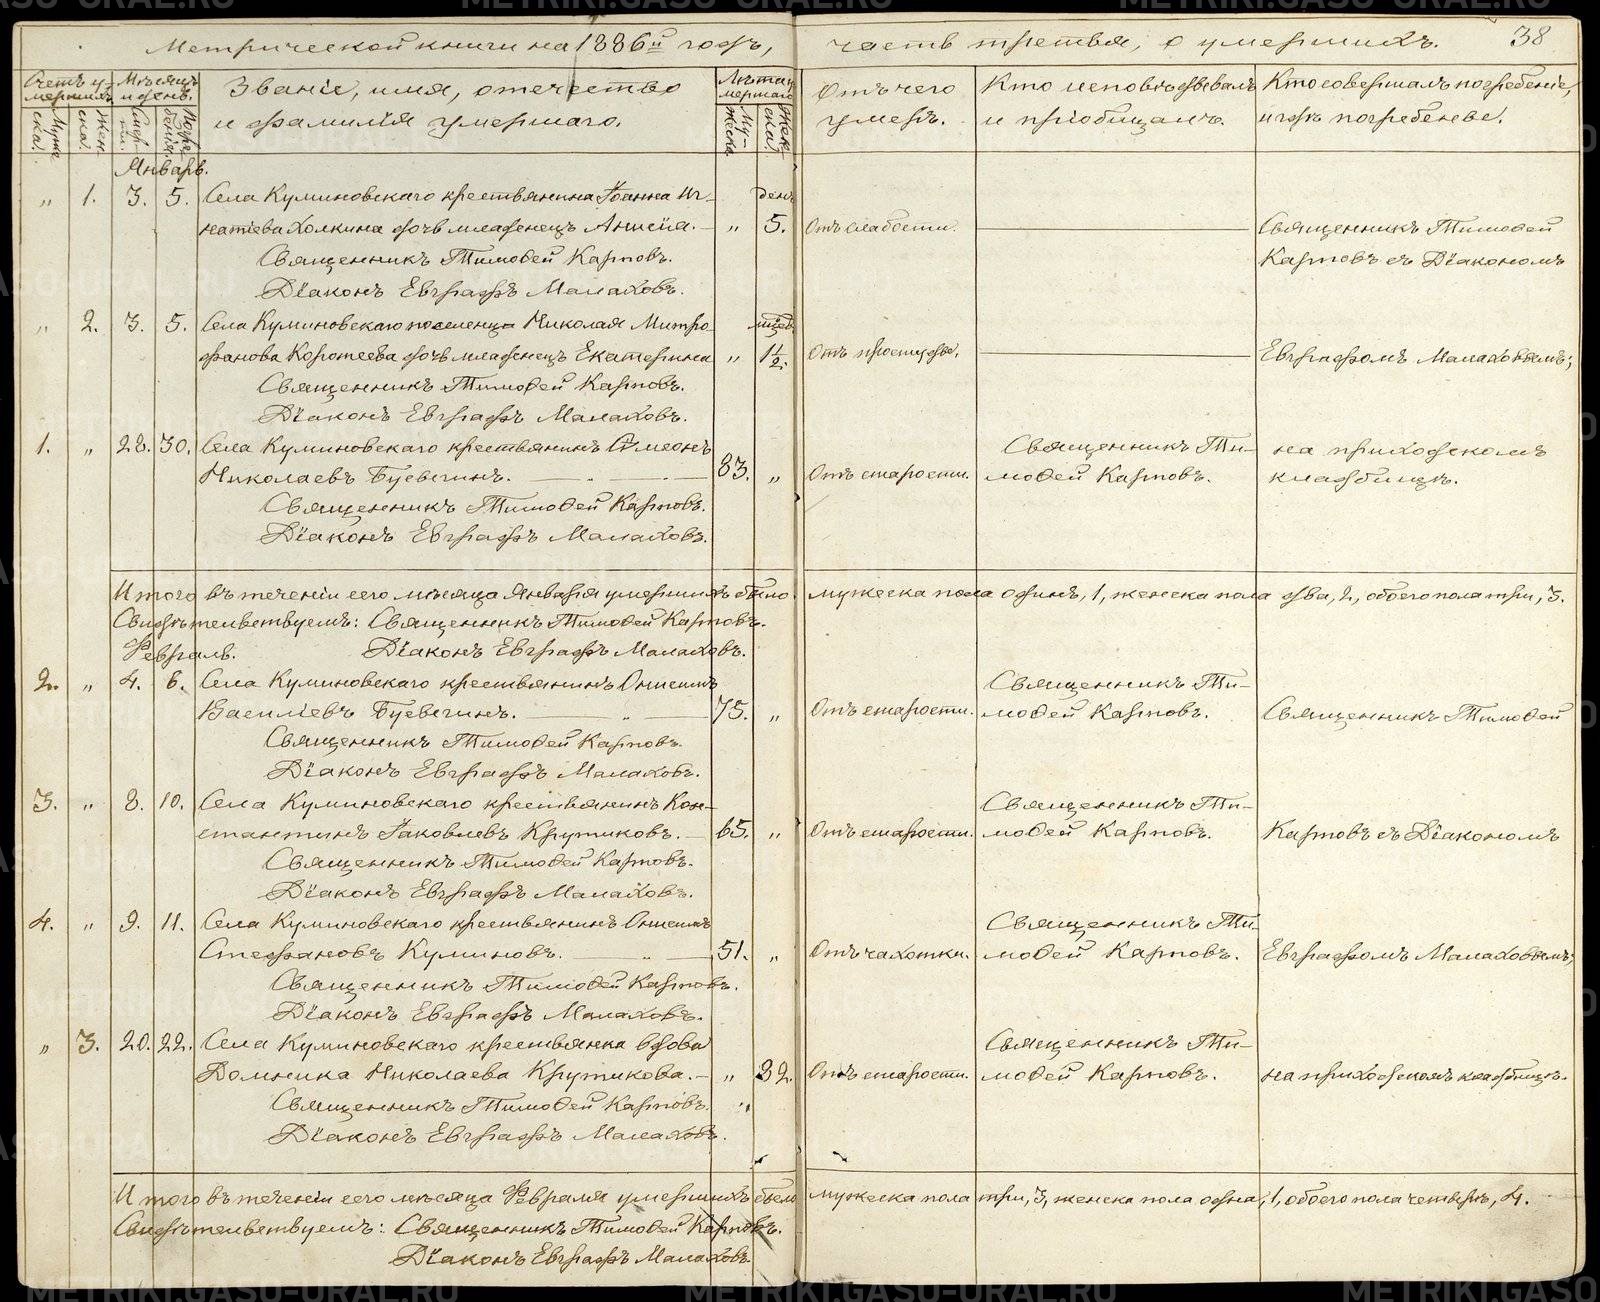 Метрической книги на 1886й годъ, часть третья, о умершихъ. 38
Счетъ умершихъ.
Мужеска.
Женска.
Мѣсяцъ и день.
Смерти.
Погребенія.
Званіе, имя, отечество
и фамилія умершаго.
Лѣта умершаго
Мужеска
Женска
Отъ чего
умеръ.
Кто исповѣдывалъ
и пріобщалъ.
Кто совершалъ погребеніе,
и гдѣ погребены.
Январь.
„ 1. 3. 5. Села Куминовскаго крестьянина Іоанна Иг- день
натіева Холкина дочь младенецъ Анисія. — „ 5. Отъ слабости. Священникъ Тимоѳей
Священникъ Тимоѳей Карповъ. Карповъ съ Діакономъ
Діаконъ Евграфъ Малаховъ.
„ 2. 3. 5. Села Куминовскаго поселенца Николая Митро-
фанова Коротеева дочь младенецъ Екатерина „ 1½. Отъ простуды. Евграфомъ Малаховымъ;
Священникъ Тимоѳей Карповъ.
Діаконъ Евграфъ Малаховъ.
1. „ 28. 30. Села Куминовскаго крестьянинъ Сѵмеонъ Священникъ Ти- на приходскомъ
Николаевъ Буевичинъ. 83. „ Отъ старости. моѳей Карповъ. кладбищѣ.
Священникъ Тимоѳей Карповъ.
Діаконъ Евграфъ Малаховъ.
Итого въ теченіи сего мѣсяца Января умершихъ было мужеска пола одинъ, 1, женска пола два, 2, обоего пола три, 3.
Свидѣтельствуемъ: Священникъ Тимоѳей Карповъ.
Февраль. Діаконъ Евграфъ Малаховъ.
2. „ 4. 6. Села Куминовскаго крестьянинъ Онисимъ Священникъ Ти-
Василіевъ Буевичинъ. 75. „ Отъ старости. моѳей Карповъ. Священникъ Тимоѳей
Священникъ Тимоѳей Карповъ.
Діаконъ Евграфъ Малаховъ.
3. „ 8. 10. Села Куминовскаго крестьянинъ Кон- Священникъ Ти-
стантинъ Іаковлевъ Крутиковъ. — 65. „ Отъ старости. моѳей Карповъ. Карповъ съ Діакономъ
Священникъ Тимоѳей Карповъ.
Діаконъ Евграфъ Малаховъ.
4. „ 9. 11. Села Куминовскаго крестьянинъ Онисимъ Священникъ Ти-
Стефановъ Куминовъ. 51. „ Отъ чахотки. моѳей Карповъ. Евграфомъ Малаховымъ;
Священникъ Тимоѳей Карповъ.
Діаконъ Евграфъ Малаховъ.
„ 3. 20. 22. Села Куминовскаго крестьянка вдова Священникъ Ти-
Домника Николаева Крутикова. — „ 82. Отъ старости. моѳей Карповъ. на приходскомъ кладбищѣ.
Священникъ Тимоѳей Карповъ.
Діаконъ Евграфъ Малаховъ.
Итого въ теченіи сего мѣсяца Февраля умершихъ было мужеска пола три, 3, женска пола одна, 1, обоего пола четверо, 4.
Свидѣтельствуемъ: Священникъ Тимоѳей Карповъ.
Діаконъ Евграфъ Малаховъ.
METRIKI.GASO-URAL.RU